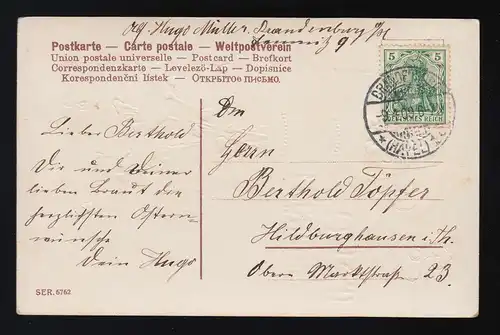 Abs. Hugo Müller, Brandenburg a/H
9
Postkarte — Carte postale — Weltpostverein
Union postale universelle — Postcard — Brefkort
Correspondenzkarte — Levelező-Lap — Dopisnice
Korespondenční lístek — ОТКРЫТОЕ ПИСЬМО.
5 5
DEUTSCHES REICH
(HAVEL)
Lieber Berthold
Dir und Deiner
lieben Braut den
herzlichsten Ostern-
wünsche
Dein Hugo
Herrn
Berthold Töpfer
Hildburghausen i. Th.
Obere Marktstraße 23.
SER. 6762